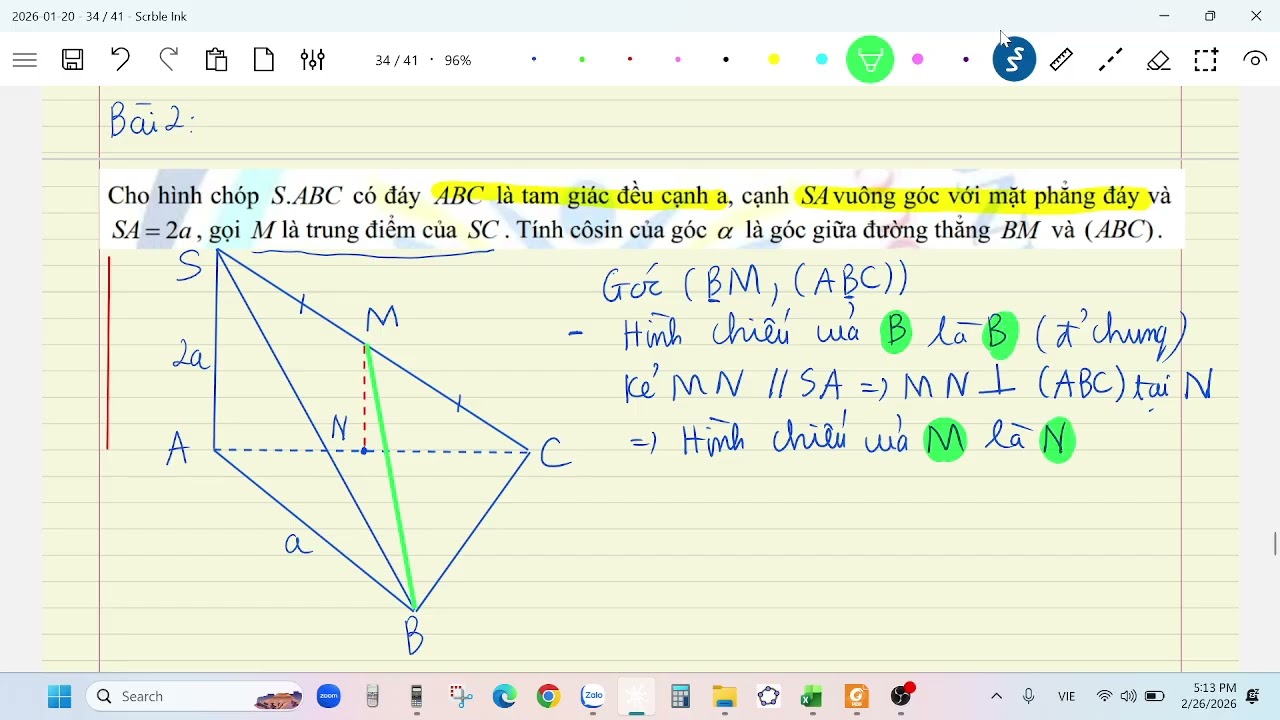 2026-01-20 - 34 / 41 - Scrble Ink
34 / 41 · 96%
Bài 2:
Cho hình chóp S.ABC có đáy ABC là tam giác đều cạnh a, cạnh SA vuông góc với mặt phẳng đáy và
SA = 2a, gọi M là trung điểm của SC. Tính côsin của góc α là góc giữa đường thẳng BM và (ABC).
S
M
2a
N
A
C
a
B
Góc (BM, (ABC))
- Hình chiếu của B là B (đ' chung)
Kẻ MN // SA => MN ⊥ (ABC) tại N
=> Hình chiếu của M là N
Search
zoom
Zalo
VIE
5:13 PM
2/26/2026